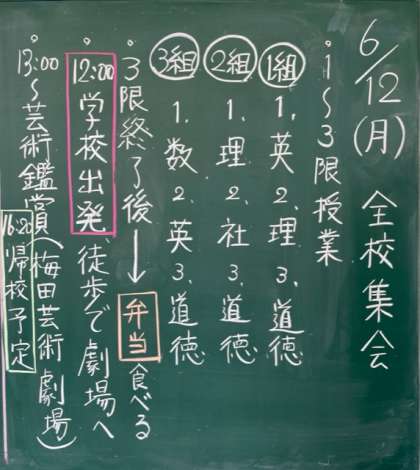 6/12(月) 全校集会
・1〜3限授業
1組 1.英 2.理 3.道徳
2組 1.理 2.社 3.道徳
3組 1.数 2.英 3.道徳
・3限終了後→弁当食べる
・12:00学校出発、徒歩で劇場へ
・13:00〜芸術鑑賞(梅田芸術劇場)
16:20帰校予定